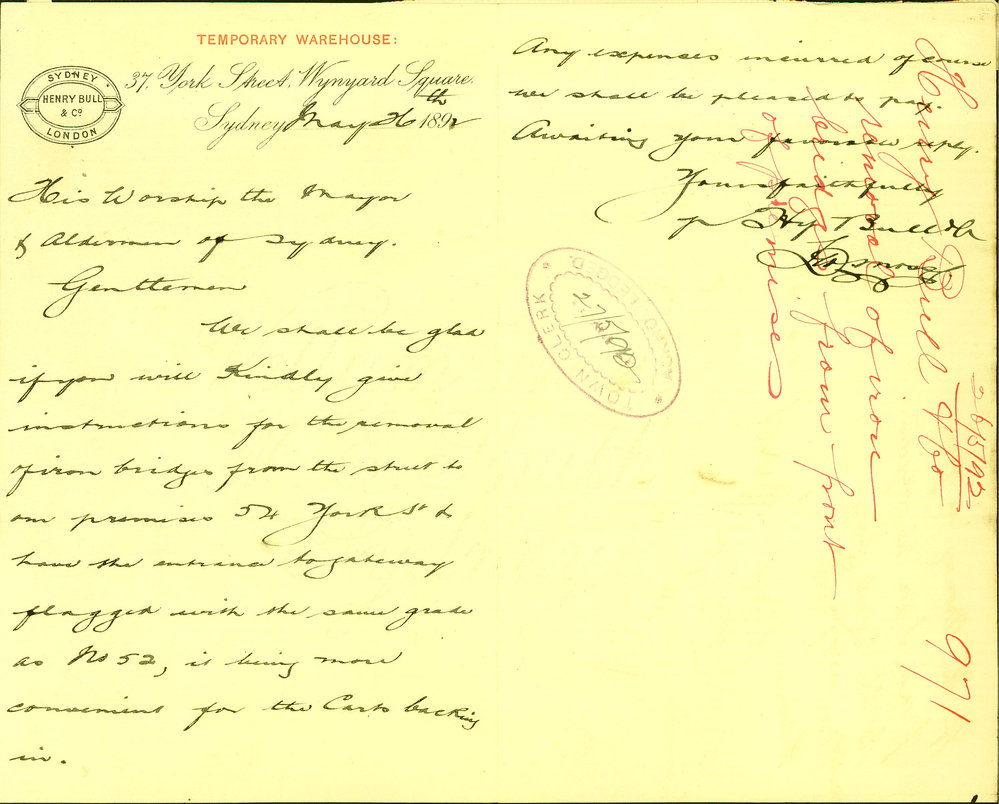 TEMPORARY WAREHOUSE:
SYDNEY
HENRY BULL
& Co
LONDON
37, York Street, Wynyard Square.
Sydney May 26th 1892
His Worship the Mayor
& Aldermen of Sydney.
Gentlemen
We shall be glad
if you will Kindly give
instructions for the removal
of iron bridges from the street to
our premises 54 York St &
have the entrance to gateway
flagged with the same grade
as No 52, it being more
convenient for the Carts backing
in.
Any expenses incurred of course
we shall be pleased to pay.
Awaiting your favorable reply.
Yours faithfully
pr Hy Bull & Co
TOWN CLERK
27/5/92
RECORD
Henry Bull & Co
removal of iron
bridges from front
of premises
26/5/92
971